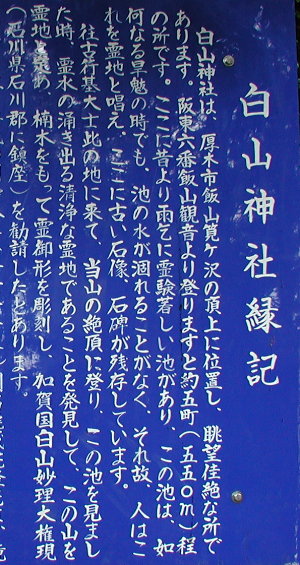 白山神社縁記
白山神社は、厚木市飯山筧ケ沢の頂上に位置し、眺望佳絶な所で
あります。阪東六番飯山観音より登りますと約五町(五五〇m)程
の所です。ここに昔より雨乞に霊験著しい池があり、この池は、如
何なる旱魃の時でも、池の水が涸れることがなく、それ故、人はこ
れを霊地と唱え、ここに古い石像、石碑が残存しています。
往古行基大士此の地に来て、当山の絶頂に登り、この池を見まし
た時、霊水の涌き出る清浄な霊地であることを発見して、この山を
霊地と崇め、楠木をもって霊御形を彫刻し、加賀国白山妙理大権現
(石川県石川郡に鎮座)を勧請したとあります。